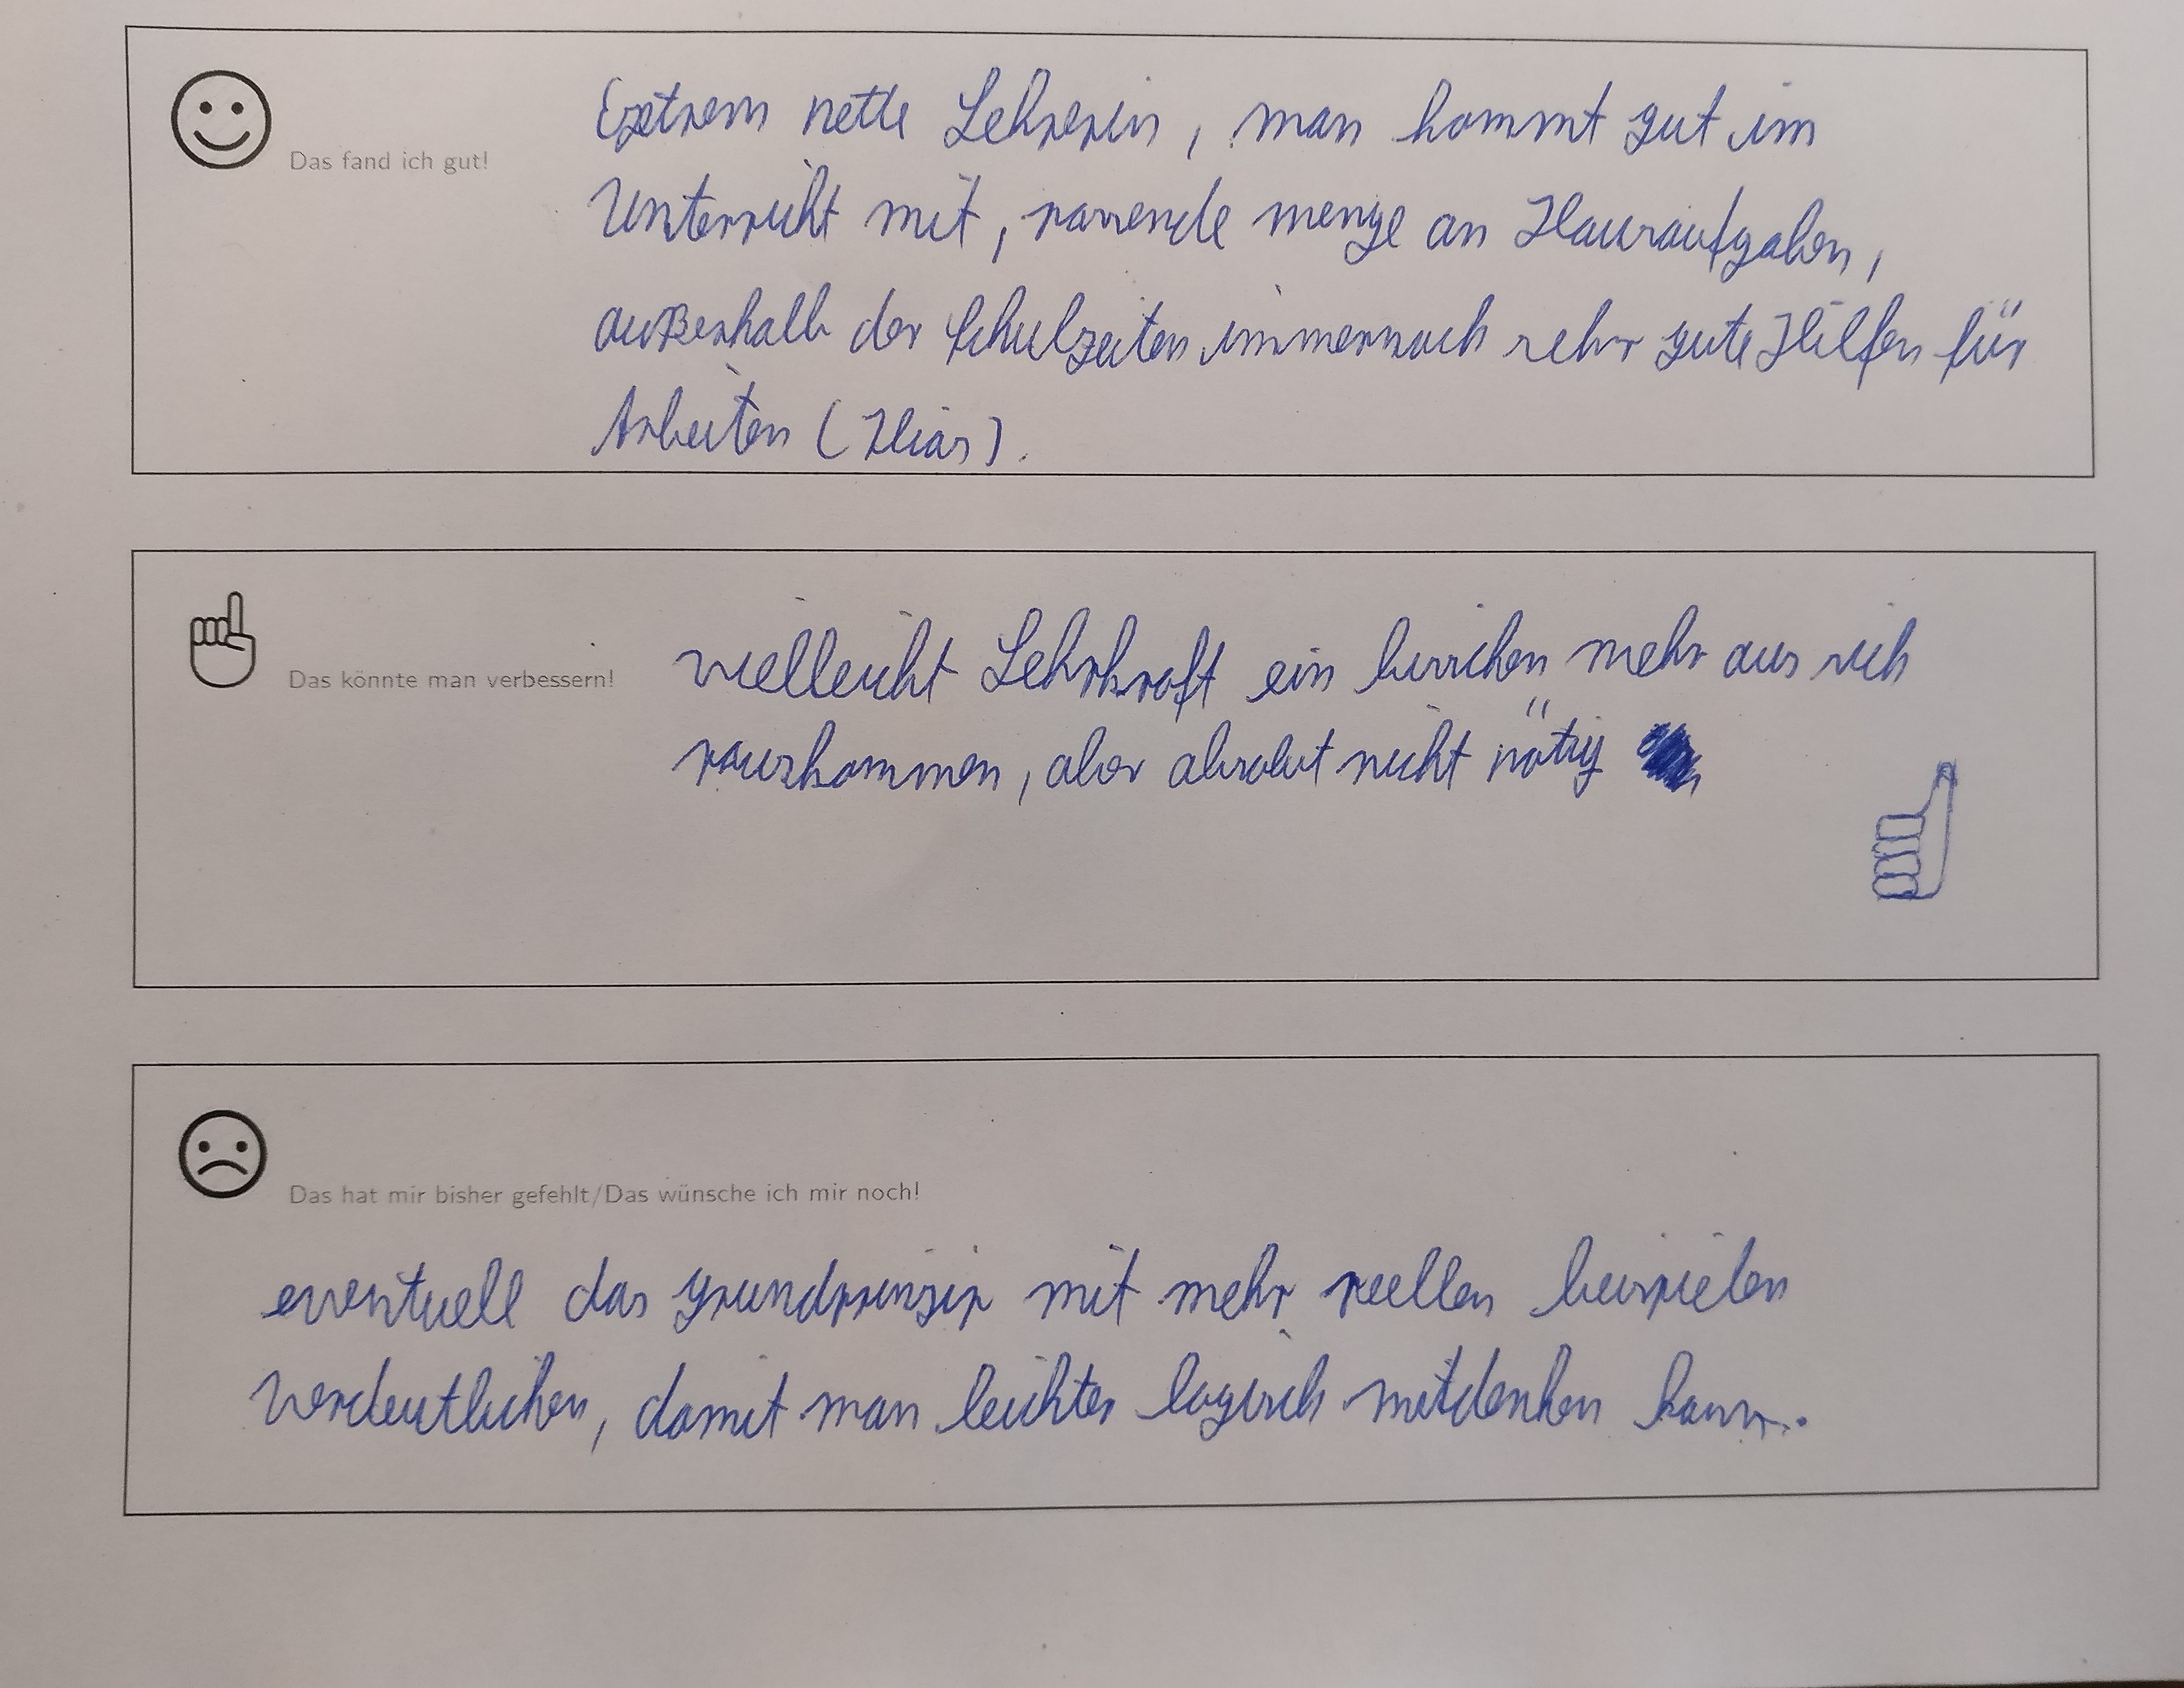 Das fand ich gut!
Extrem nette Lehrerin, man kommt gut im
Unterricht mit, passende menge an Hausaufgaben,
außerhalb der Schulzeiten immernoch sehr gute Hilfen für
Arbeiten (Ilias).
Das könnte man verbessern!
vielleicht Lehrkraft ein bisschen mehr aus sich
rauskommen, aber absolut nicht nötig
Das hat mir bisher gefehlt/Das wünsche ich mir noch!
eventuell das grundprinzip mit mehr reellen beispielen
verdeutlichen, damit man leichter logisch mitdenken kann.